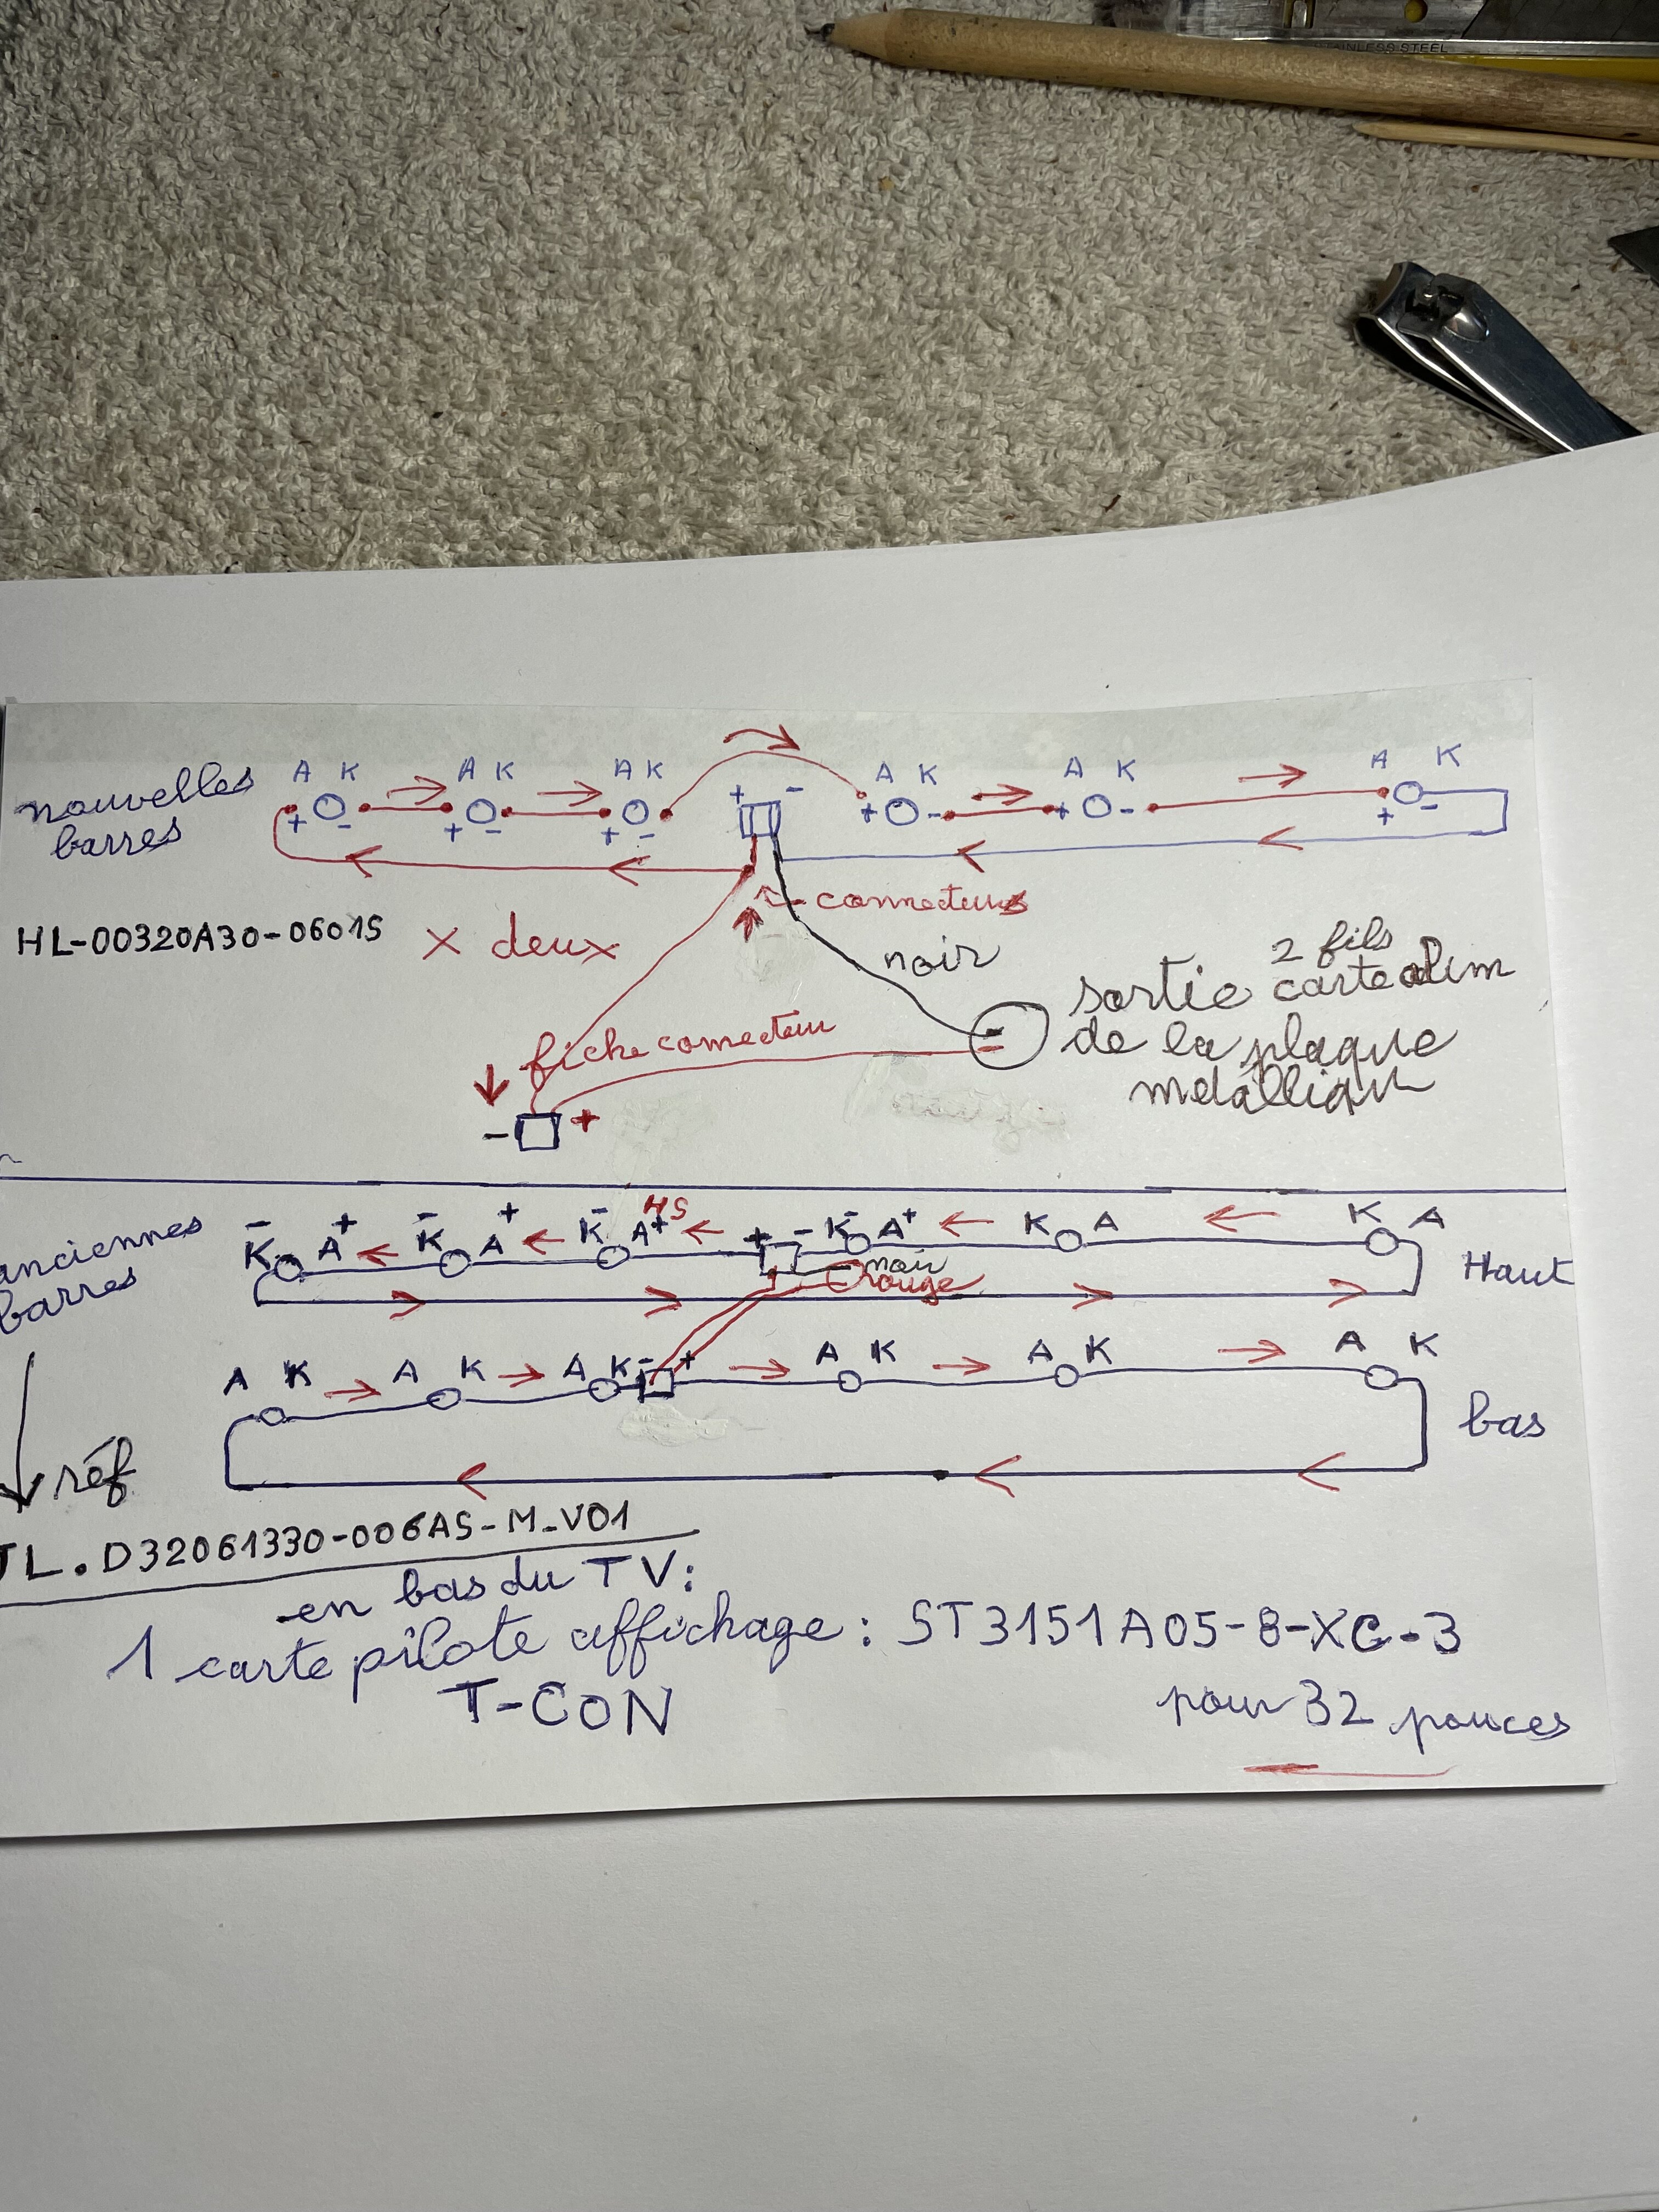 STAINLESS STEEL
A K A K A K + - A K A K A K
nouvelles
barres
+ - + - + - + - + - + -
connecteurs
HL-00320A30-0601S x deux
noir
2 fils
sortie carte alim
de la plaque
métallique
fiche connecteur
- +
anciennes
barres
- + - + - HS + - - +
K A K A K A + K A K A K A
noir
rouge
Haut
A K A K A K - + A K A K A K
bas
réf
JL.D32061330-006AS-M-V01
en bas du TV:
1 carte pilote affichage : ST3151A05-8-XC-3
T-CON
pour 32 pouces